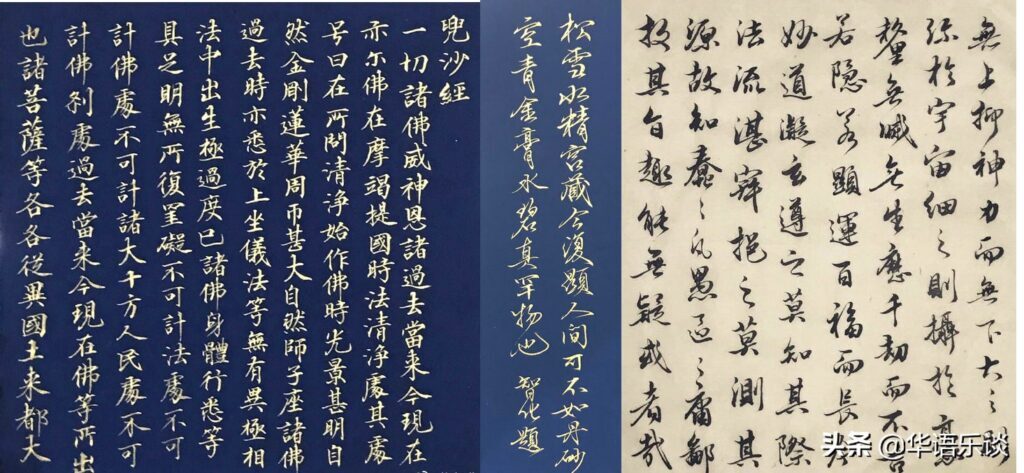 兜沙經
一切諸佛威神恩諸過去當来今現在
亦尒佛在摩竭提國時法清淨處其處
号曰在所問清淨始作佛時光景甚明自
然金剛蓮華周帀甚大自然師子座諸佛
過去時亦悉於上坐儀法等無有異極相
法中出生極過度已諸佛身體行悉等
具足明無所復罣礙不可計法處不可
計佛處不可計諸大十方人民處不可
計佛刹處過去當来今現在佛等所出
也諸菩薩等各各從異國土来都大
松雪水精宮藏今復顯人間可不如丹砂
空青金膏水碧真罕物也 智化題
無上抑神力而無下大之則
弥於宇宙細之則攝於豪
釐無滅無生應千劫而不古
若隱若顯運百福而長今
妙道凝玄遵之莫知其際
法流湛寂挹之莫測其
源故知蠢〻凡愚區〻庸鄙
投其旨趣能無疑或者哉
头条 @华语乐谈